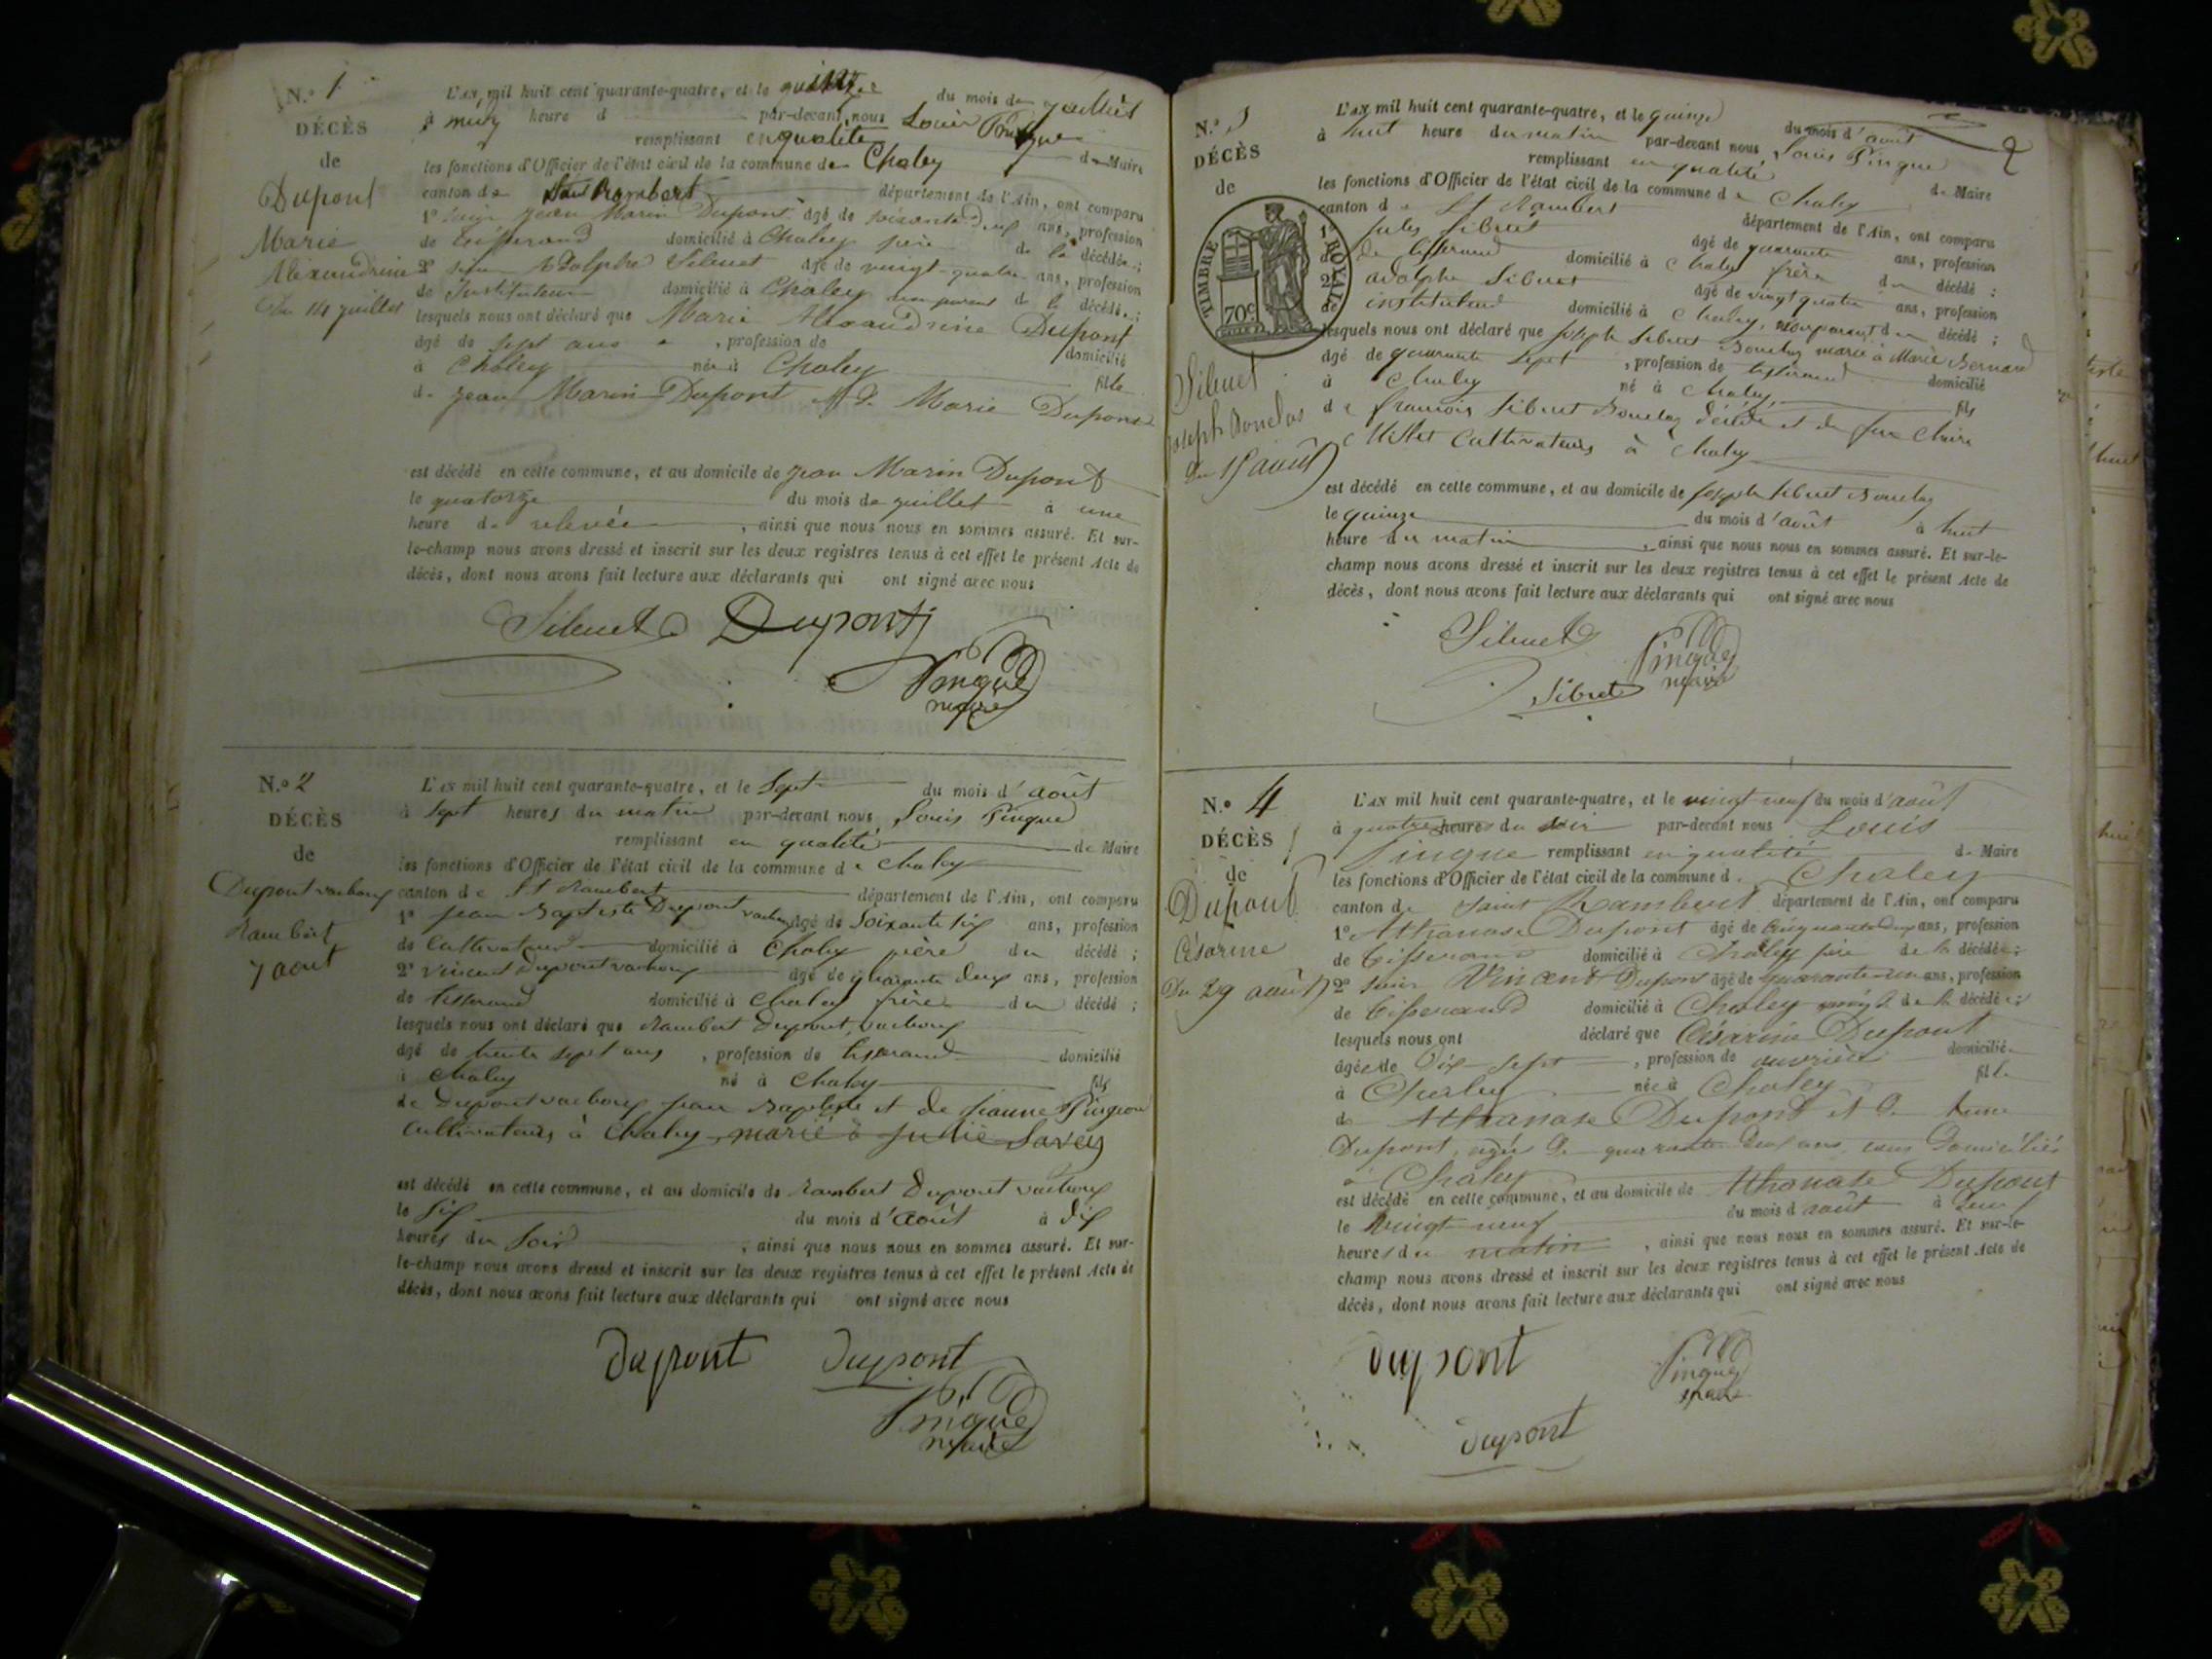 N.o 1
DÉCÈS
de
Dupont
Marie
Alexandrine
Du 14 juillet
L'AN mil huit cent quarante-quatre, et le quinze du mois de juillet
à heure d par-devant nous Louis Pingue
remplissant en qualité de Maire
les fonctions d'Officier de l'état civil de la commune de Chaley
canton de Saint Rambert département de l'Ain, ont comparu
1o sieur Jean Marin Dupont âgé de soixante deux ans, profession
de tisserand domicilié à Chaley père de la décédée ;
2o sieur Adolphe Sibuet âgé de vingt-quatre ans, profession
de Instituteur domicilié à Chaley non parent de la décédée ;
lesquels nous ont déclaré que Marie Alexandrine Dupont
âgé de sept ans , profession de domicilié
à Chaley née à Chaley fille
de Jean Marin Dupont et de Marie Dupont
est décédé en cette commune, et au domicile de Jean Marin Dupont
le quatorze du mois de juillet à une
heure de relevée , ainsi que nous nous en sommes assuré. Et sur-
le-champ nous avons dressé et inscrit sur les deux registres tenus à cet effet le présent Acte de
décès, dont nous avons fait lecture aux déclarants qui ont signé avec nous
Sibuet Dupont
Pingue
maire
N.o 2
DÉCÈS
de
Dupont vachoux
Rambert
7 aout
L'AN mil huit cent quarante-quatre, et le sept du mois d'août
à sept heures du matin par-devant nous Louis Pingue
remplissant en qualité de Maire
les fonctions d'Officier de l'état civil de la commune de Chaley
canton de St Rambert département de l'Ain, ont comparu
1o jean Baptiste Dupont âgé de Soixante six ans, profession
de Cultivateur domicilié à Chaley père du décédé ;
2o vincent Dupont âgé de quarante deux ans, profession
de tisserand domicilié à Chaley frère du décédé ;
lesquels nous ont déclaré que Rambert Dupont
âgé de trente sept ans , profession de tisserand domicilié
à Chaley né à Chaley fils
de Dupont jean Baptiste et de jeanne Pingeon
Cultivateurs à Chaley marié à julie Savey
est décédé en cette commune, et au domicile de Rambert Dupont
le six du mois d'août à dix
heures du soir , ainsi que nous nous en sommes assuré. Et sur-
le-champ nous avons dressé et inscrit sur les deux registres tenus à cet effet le présent Acte de
décès, dont nous avons fait lecture aux déclarants qui ont signé avec nous
Dupont Dupont
Pingue
maire
2
N.o 3
DÉCÈS
de
TIMBRE ROYAL
70c
Sibuet
joseph
du 15 août
L'AN mil huit cent quarante-quatre, et le quinze du mois d'août
à huit heure du matin par-devant nous Louis Pingue
remplissant en qualité de Maire
les fonctions d'Officier de l'état civil de la commune de Chaley
canton de St Rambert département de l'Ain, ont comparu
1o jules Sibuet âgé de quarante ans, profession
de tisserand domicilié à Chaley frère du décédé ;
2o adolphe Sibuet âgé de vingt quatre ans, profession
de instituteur domicilié à Chaley, non parent du décédé ;
lesquels nous ont déclaré que joseph Sibuet marié à Marie Bernard
âgé de quarante sept , profession de tisserand domicilié
à Chaley né à Chaley, fils
de francois Sibuet décédé et de feue Claire
Millet Cultivateurs à Chaley
est décédé en cette commune, et au domicile de joseph Sibuet
le quinze du mois d'août à huit
heure du matin , ainsi que nous nous en sommes assuré. Et sur-le-
champ nous avons dressé et inscrit sur les deux registres tenus à cet effet le présent Acte de
décès, dont nous avons fait lecture aux déclarants qui ont signé avec nous
Sibuet Pingue
Sibuet maire
N.o 4
DÉCÈS
de
Dupont
Césarine
Du 29 août
L'AN mil huit cent quarante-quatre, et le vingt-neuf du mois d'août
à quatre heures du soir par-devant nous Louis
Pingue remplissant en qualité de Maire
les fonctions d'Officier de l'état civil de la commune d. Chaley
canton de Saint Rambert département de l'Ain, ont comparu
1o Athanase Dupont âgé de cinquante deux ans, profession
de tisserand domicilié à Chaley père de la décédée ;
2o sieur Vincent Dupont âgé de quarante-un ans, profession
de tisserand domicilié à Chaley de la décédée ;
lesquels nous ont déclaré que Césarine Dupont
âgée de Dix-sept , profession de ouvrière domiciliée
à Chaley née à Chaley fille
de Athanase Dupont et de
Dupont, âgée de quarante deux ans, tous Domiciliés
à Chaley
est décédé en cette commune, et au domicile de Athanase Dupont
le vingt-neuf du mois d'août à deux
heures du matin , ainsi que nous nous en sommes assuré. Et sur-le-
champ nous avons dressé et inscrit sur les deux registres tenus à cet effet le présent Acte de
décès, dont nous avons fait lecture aux déclarants qui ont signé avec nous
Dupont Pingue
maire
Dupont